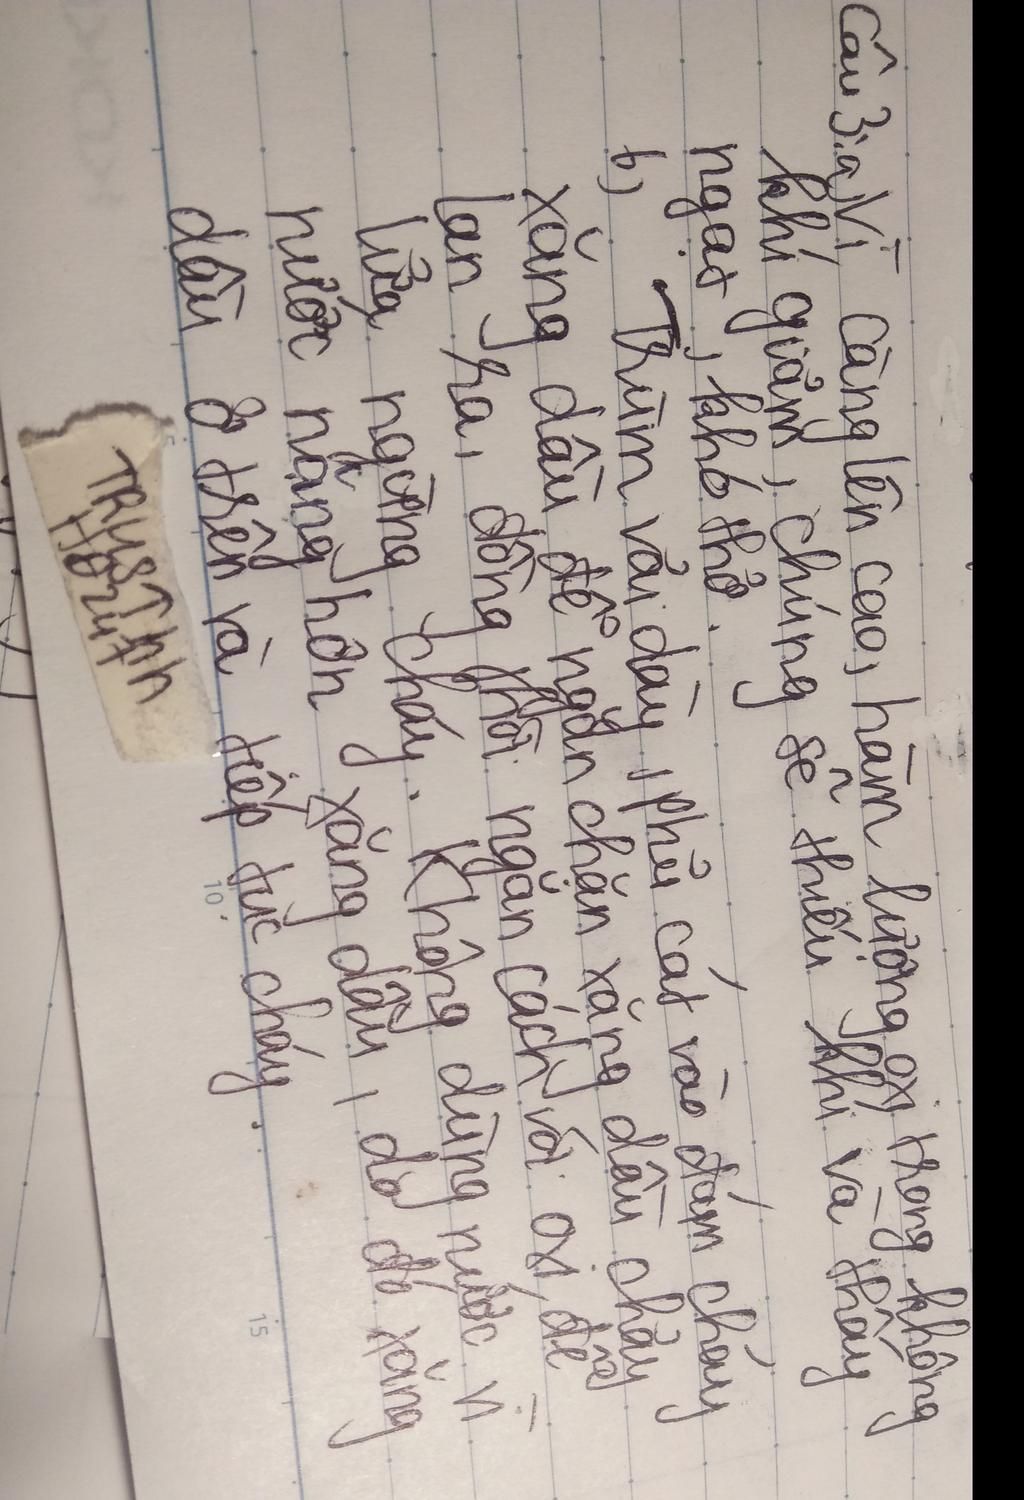 Câu 3: a, Vì càng lên cao, hàm lượng oxi trong không
khí giảm, chúng sẽ thiếu khí và thấy
ngạt, khó thở.
b) Trùm vải dày, phủ cát vào đám cháy
xăng dầu để ngăn chặn xăng dầu chảy
lan ra, đồng thời ngăn cách với oxi để
lửa ngừng cháy. Không dùng nước vì
nước nặng hơn xăng dầu, do đó xăng
dầu ở trên và tiếp tục cháy.
10
15